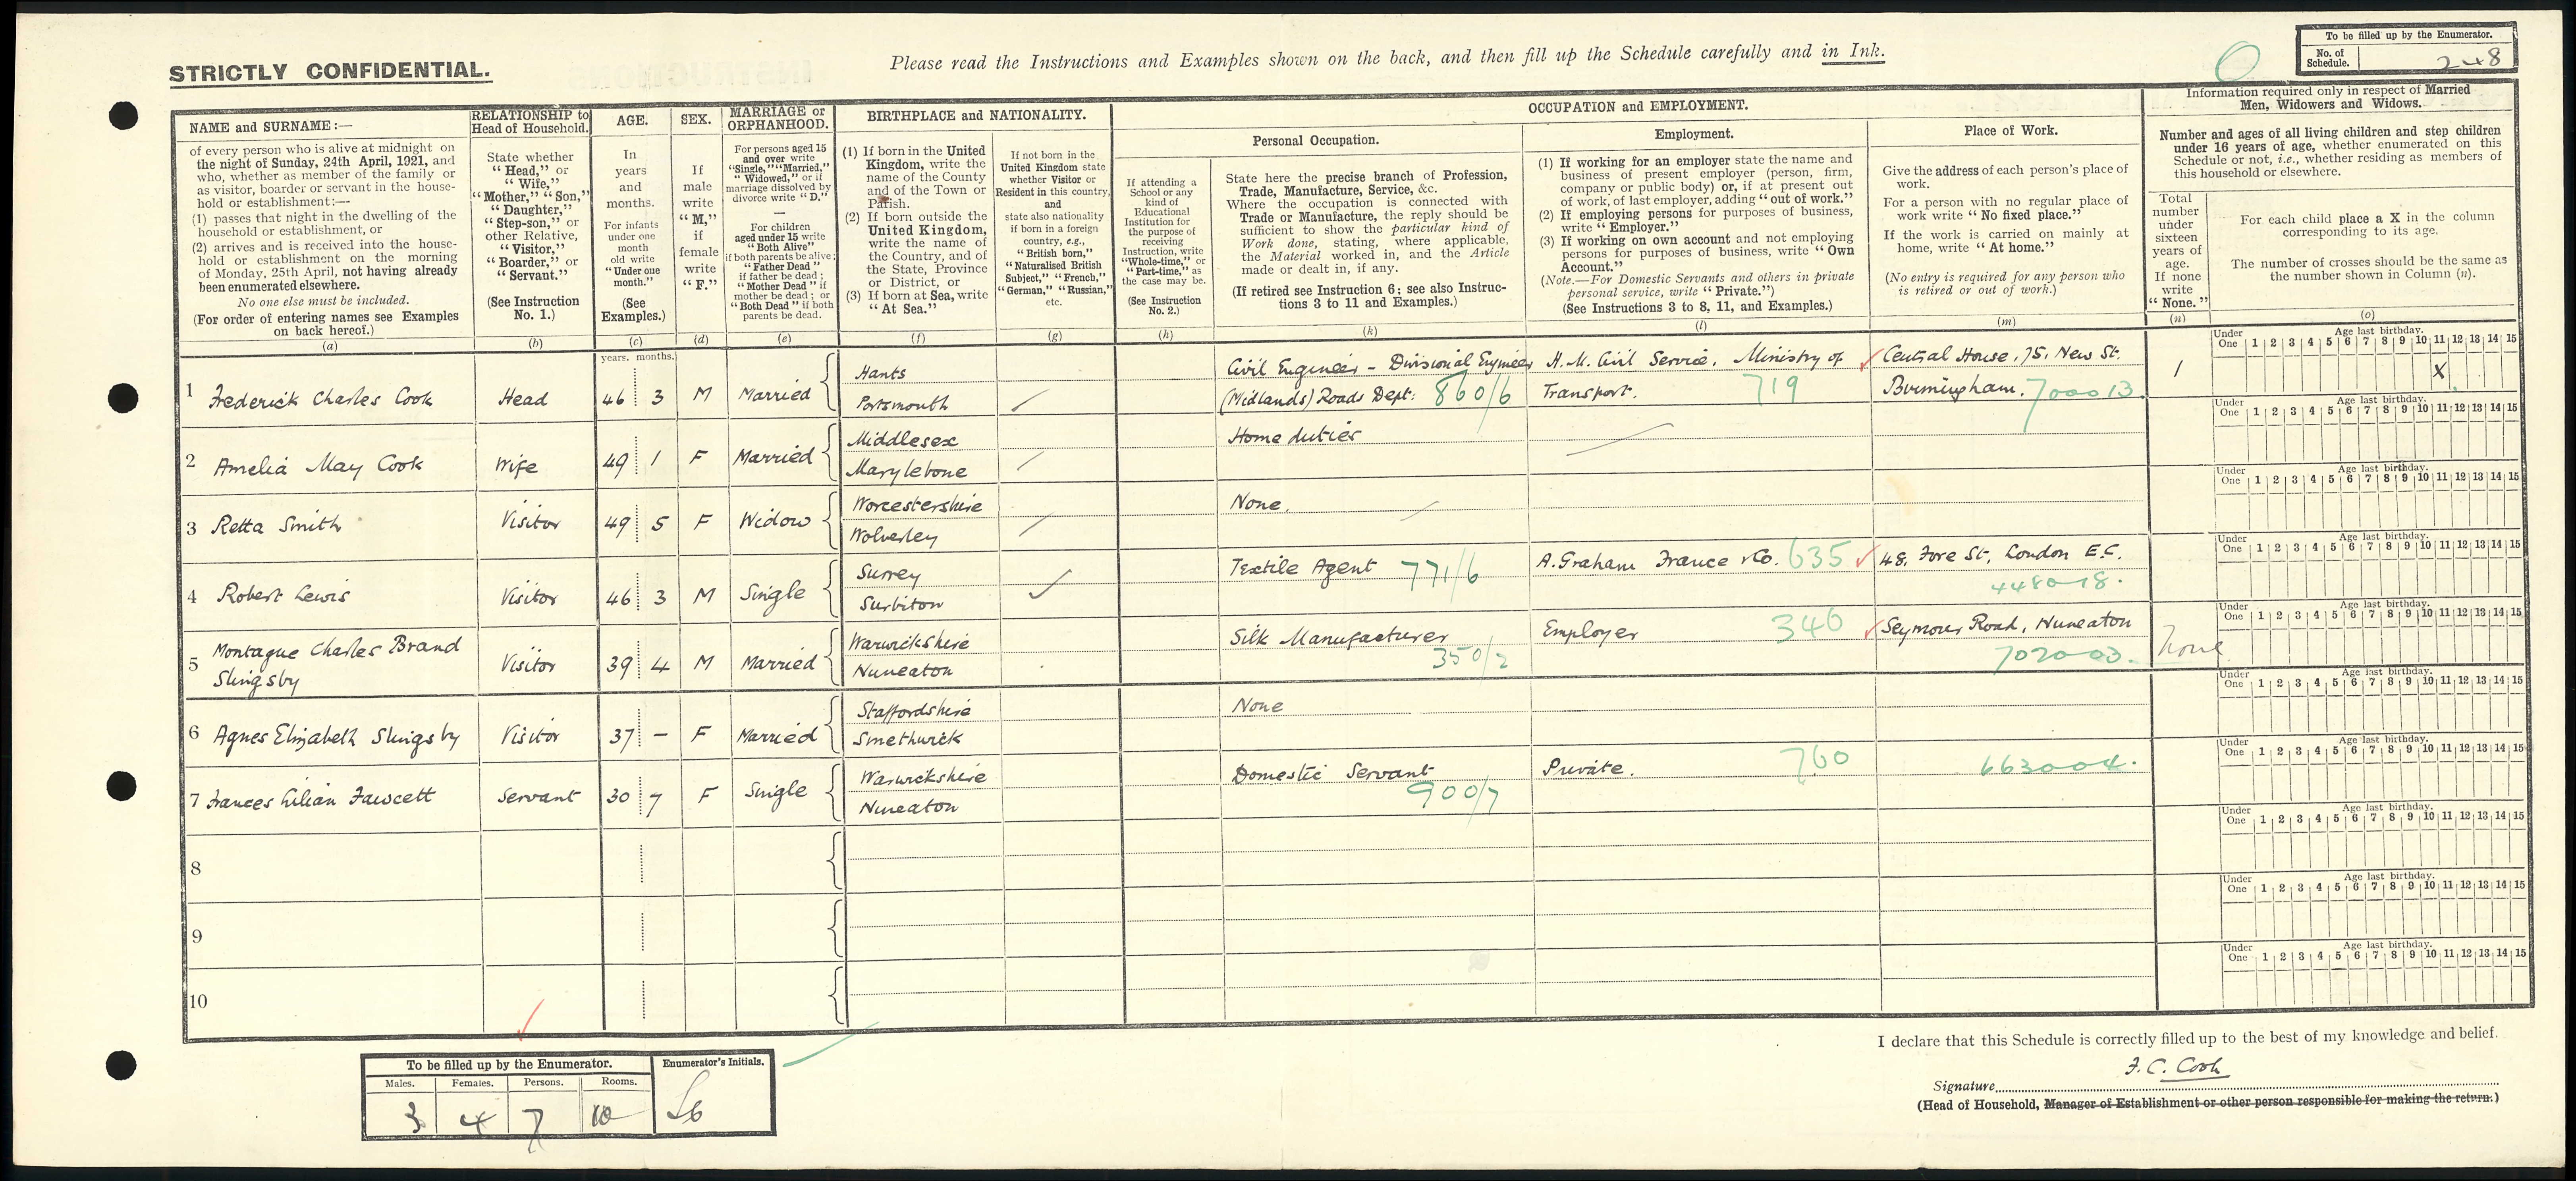 STRICTLY CONFIDENTIAL.
Please read the Instructions and Examples shown on the back, and then fill up the Schedule carefully and in Ink.
To be filled up by the Enumerator.
No. of Schedule. 248
NAME and SURNAME:—
of every person who is alive at midnight on
the night of Sunday, 24th April, 1921, and
who, whether as member of the family or
as visitor, boarder or servant in the house-
hold or establishment:—
(1) passes that night in the dwelling of the
household or establishment, or
(2) arrives and is received into the house-
hold or establishment on the morning
of Monday, 25th April, not having already
been enumerated elsewhere.
No one else must be included.
(For order of entering names see Examples
on back hereof.)
(a)
RELATIONSHIP to
Head of Household.
State whether
"Head," or
"Wife,"
"Mother," "Son,"
"Daughter,"
"Step-son," or
other Relative,
"Visitor,"
"Boarder," or
"Servant."
(See Instruction
No. 1.)
(b)
AGE.
In
years
and
months.
For infants
under one
month
old write
"Under one
month."
(See
Examples.)
(c)
SEX.
If
male
write
"M,"
if
female
write
"F."
(d)
MARRIAGE or
ORPHANHOOD.
For persons aged 15
and over write
"Single," "Married,"
"Widowed," or if
marriage dissolved by
divorce write "D."
—
For children
aged under 15 write
"Both Alive"
if both parents be alive;
"Father Dead"
if father be dead;
"Mother Dead" if
mother be dead; or
"Both Dead" if both
parents be dead.
(e)
BIRTHPLACE and NATIONALITY.
(1) If born in the United
Kingdom, write the
name of the County
and of the Town or
Parish.
(2) If born outside the
United Kingdom,
write the name of
the Country, and of
the State, Province
or District, or
(3) If born at Sea, write
"At Sea."
(f)
If not born in the
United Kingdom state
whether Visitor or
Resident in this country,
and
state also nationality
if born in a foreign
country, e.g.,
"British born,"
"Naturalised British
Subject," "French,"
"German," "Russian,"
etc.
(g)
OCCUPATION and EMPLOYMENT.
If attending a
School or any
kind of
Educational
Institution for
the purpose of
receiving
Instruction, write
"Whole-time," or
"Part-time," as
the case may be.
(See Instruction
No. 2.)
(h)
Personal Occupation.
State here the precise branch of Profession,
Trade, Manufacture, Service, &c.
Where the occupation is connected with
Trade or Manufacture, the reply should be
sufficient to show the particular kind of
Work done, stating, where applicable,
the Material worked in, and the Article
made or dealt in, if any.
(If retired see Instruction 6; see also Instruc-
tions 3 to 11 and Examples.)
(k)
Employment.
(1) If working for an employer state the name and
business of present employer (person, firm,
company or public body) or, if at present out
of work, of last employer, adding "out of work."
(2) If employing persons for purposes of business,
write "Employer."
(3) If working on own account and not employing
persons for purposes of business, write "Own
Account."
(Note.—For Domestic Servants and others in private
personal service, write "Private.")
(See Instructions 3 to 8, 11, and Examples.)
(l)
Place of Work.
Give the address of each person's place of
work.
For a person with no regular place of
work write "No fixed place."
If the work is carried on mainly at
home, write "At home."
(No entry is required for any person who
is retired or out of work.)
(m)
Information required only in respect of Married
Men, Widowers and Widows.
Number and ages of all living children and step children
under 16 years of age, whether enumerated on this
Schedule or not, i.e., whether residing as members of
this household or elsewhere.
Total
number
under
sixteen
years of
age.
If none
write
"None."
(n)
For each child place a X in the column
corresponding to its age.
The number of crosses should be the same as
the number shown in Column (n).
(o)
years. months.
Under One Age last birthday. 1 2 3 4 5 6 7 8 9 10 11 12 13 14 15
1 Frederick Charles Cook Head 46 3 M Married Hants Portsmouth Civil Engineer - Divisional Engineer (Midlands) Roads Dept: 860/6 H.M. Civil Service. Ministry of Transport. 719 Central House, 75, New St. Birmingham. 700013 1 X
Under One Age last birthday. 1 2 3 4 5 6 7 8 9 10 11 12 13 14 15
2 Amelia May Cook Wife 49 1 F Married Middlesex Marylebone Home duties
Under One Age last birthday. 1 2 3 4 5 6 7 8 9 10 11 12 13 14 15
3 Retta Smith Visitor 49 5 F Widow Worcestershire Wolverley None.
Under One Age last birthday. 1 2 3 4 5 6 7 8 9 10 11 12 13 14 15
4 Robert Lewis Visitor 46 3 M Single Surrey Surbiton Textile Agent 771/6 A. Graham France & Co. 635 48, Fore St, London E.C. 448018.
Under One Age last birthday. 1 2 3 4 5 6 7 8 9 10 11 12 13 14 15
5 Montague Charles Brand Slingsby Visitor 39 4 M Married Warwickshire Nuneaton Silk Manufacturer 350/2 Employer 346 Seymour Road, Nuneaton 702003. None
Under One Age last birthday. 1 2 3 4 5 6 7 8 9 10 11 12 13 14 15
6 Agnes Elizabeth Slingsby Visitor 37 — F Married Staffordshire Smethwick None
Under One Age last birthday. 1 2 3 4 5 6 7 8 9 10 11 12 13 14 15
7 Frances Lilian Fawcett Servant 30 7 F Single Warwickshire Nuneaton Domestic Servant 900/7 Private. 760 663004.
Under One Age last birthday. 1 2 3 4 5 6 7 8 9 10 11 12 13 14 15
8
Under One Age last birthday. 1 2 3 4 5 6 7 8 9 10 11 12 13 14 15
9
Under One Age last birthday. 1 2 3 4 5 6 7 8 9 10 11 12 13 14 15
10
To be filled up by the Enumerator.
Enumerator's Initials.
Males. Females. Persons. Rooms.
3 4 7 10
I declare that this Schedule is correctly filled up to the best of my knowledge and belief.
Signature F. C. Cook
(Head of Household, Manager of Establishment or other person responsible for making the return.)